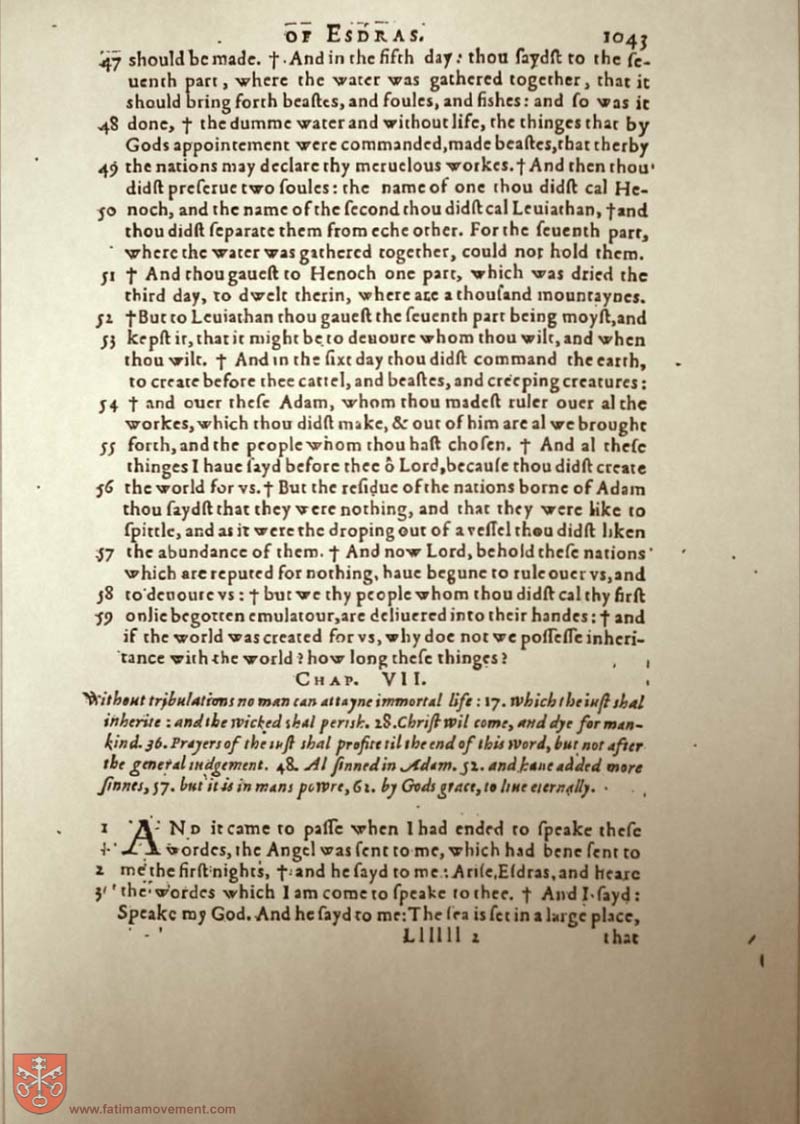 OF ESDRAS. 1043
47 should be made. † And in the fifth day: thou ſaydſt to the ſe-
uenth part, where the water was gathered together, that it
should bring forth beaſtes, and foules, and fishes: and ſo was it
48 done, † the dumme water and without life, the thinges that by
Gods appointement were commanded, made beaſtes, that therby
49 the nations may declare thy meruelous workes. † And then thou
didſt preſerue two ſoules: the name of one thou didſt cal He-
50 noch, and the name of the ſecond thou didſt cal Leuiathan, † and
thou didſt ſeparate them from eche other. For the ſeuenth part,
where the water was gathered together, could not hold them.
51 † And thou gaueſt to Henoch one part, which was dried the
third day, to dwelt therin, where are a thouſand mountaynes.
52 † But to Leuiathan thou gaueſt the ſeuenth part being moyſt, and
53 kepſt it, that it might be to deuoure whom thou wilt, and when
thou wilt. † And in the ſixt day thou didſt command the earth,
to create before thee cattel, and beaſtes, and creeping creatures:
54 † and ouer theſe Adam, whom thou madeſt ruler ouer al the
workes, which thou didſt make, & out of him are al we brought
55 forth, and the people whom thou haſt choſen. † And al theſe
thinges I haue ſayd before thee ô Lord, becauſe thou didſt create
56 the world for vs. † But the reſidue of the nations borne of Adam
thou ſaydſt that they were nothing, and that they were like to
ſpittle, and as it were the droping out of a veſſel thou didſt liken
57 the abundance of them. † And now Lord, behold theſe nations
which are reputed for nothing, haue begune to rule ouer vs, and
58 to deuoure vs: † but we thy people whom thou didſt cal thy firſt
59 onlie begotten emulatour, are deliuered into their handes: † and
if the world was created for vs, why doe not we poſſeſſe inheri-
tance with the world? how long theſe thinges?
CHAP. VII.
Without tribulations no man can attayne immortal life: 17. Which the iuſt shal
inherite: and the wicked shal perish. 28. Chriſt wil come, and dye for man-
kind. 36. Prayers of the iuſt shal profite til the end of this Word, but not after
the general iudgement. 48. Al ſinned in Adam. 52. and haue added more
ſinnes, 57. but it is in mans powre, 61. by Gods grace, to liue eternally.
1 AND it came to paſſe when I had ended to ſpeake theſe
wordes, the Angel was ſent to me, which had bene ſent to
2 me the firſt nights, † and he ſayd to me: Ariſe, Eſdras, and heare
3 the wordes which I am come to ſpeake to thee. † And I ſayd:
Speake my God. And he ſayd to me: The ſea is ſet in a large place,
Llllll 2 that
www.fatimamovement.com